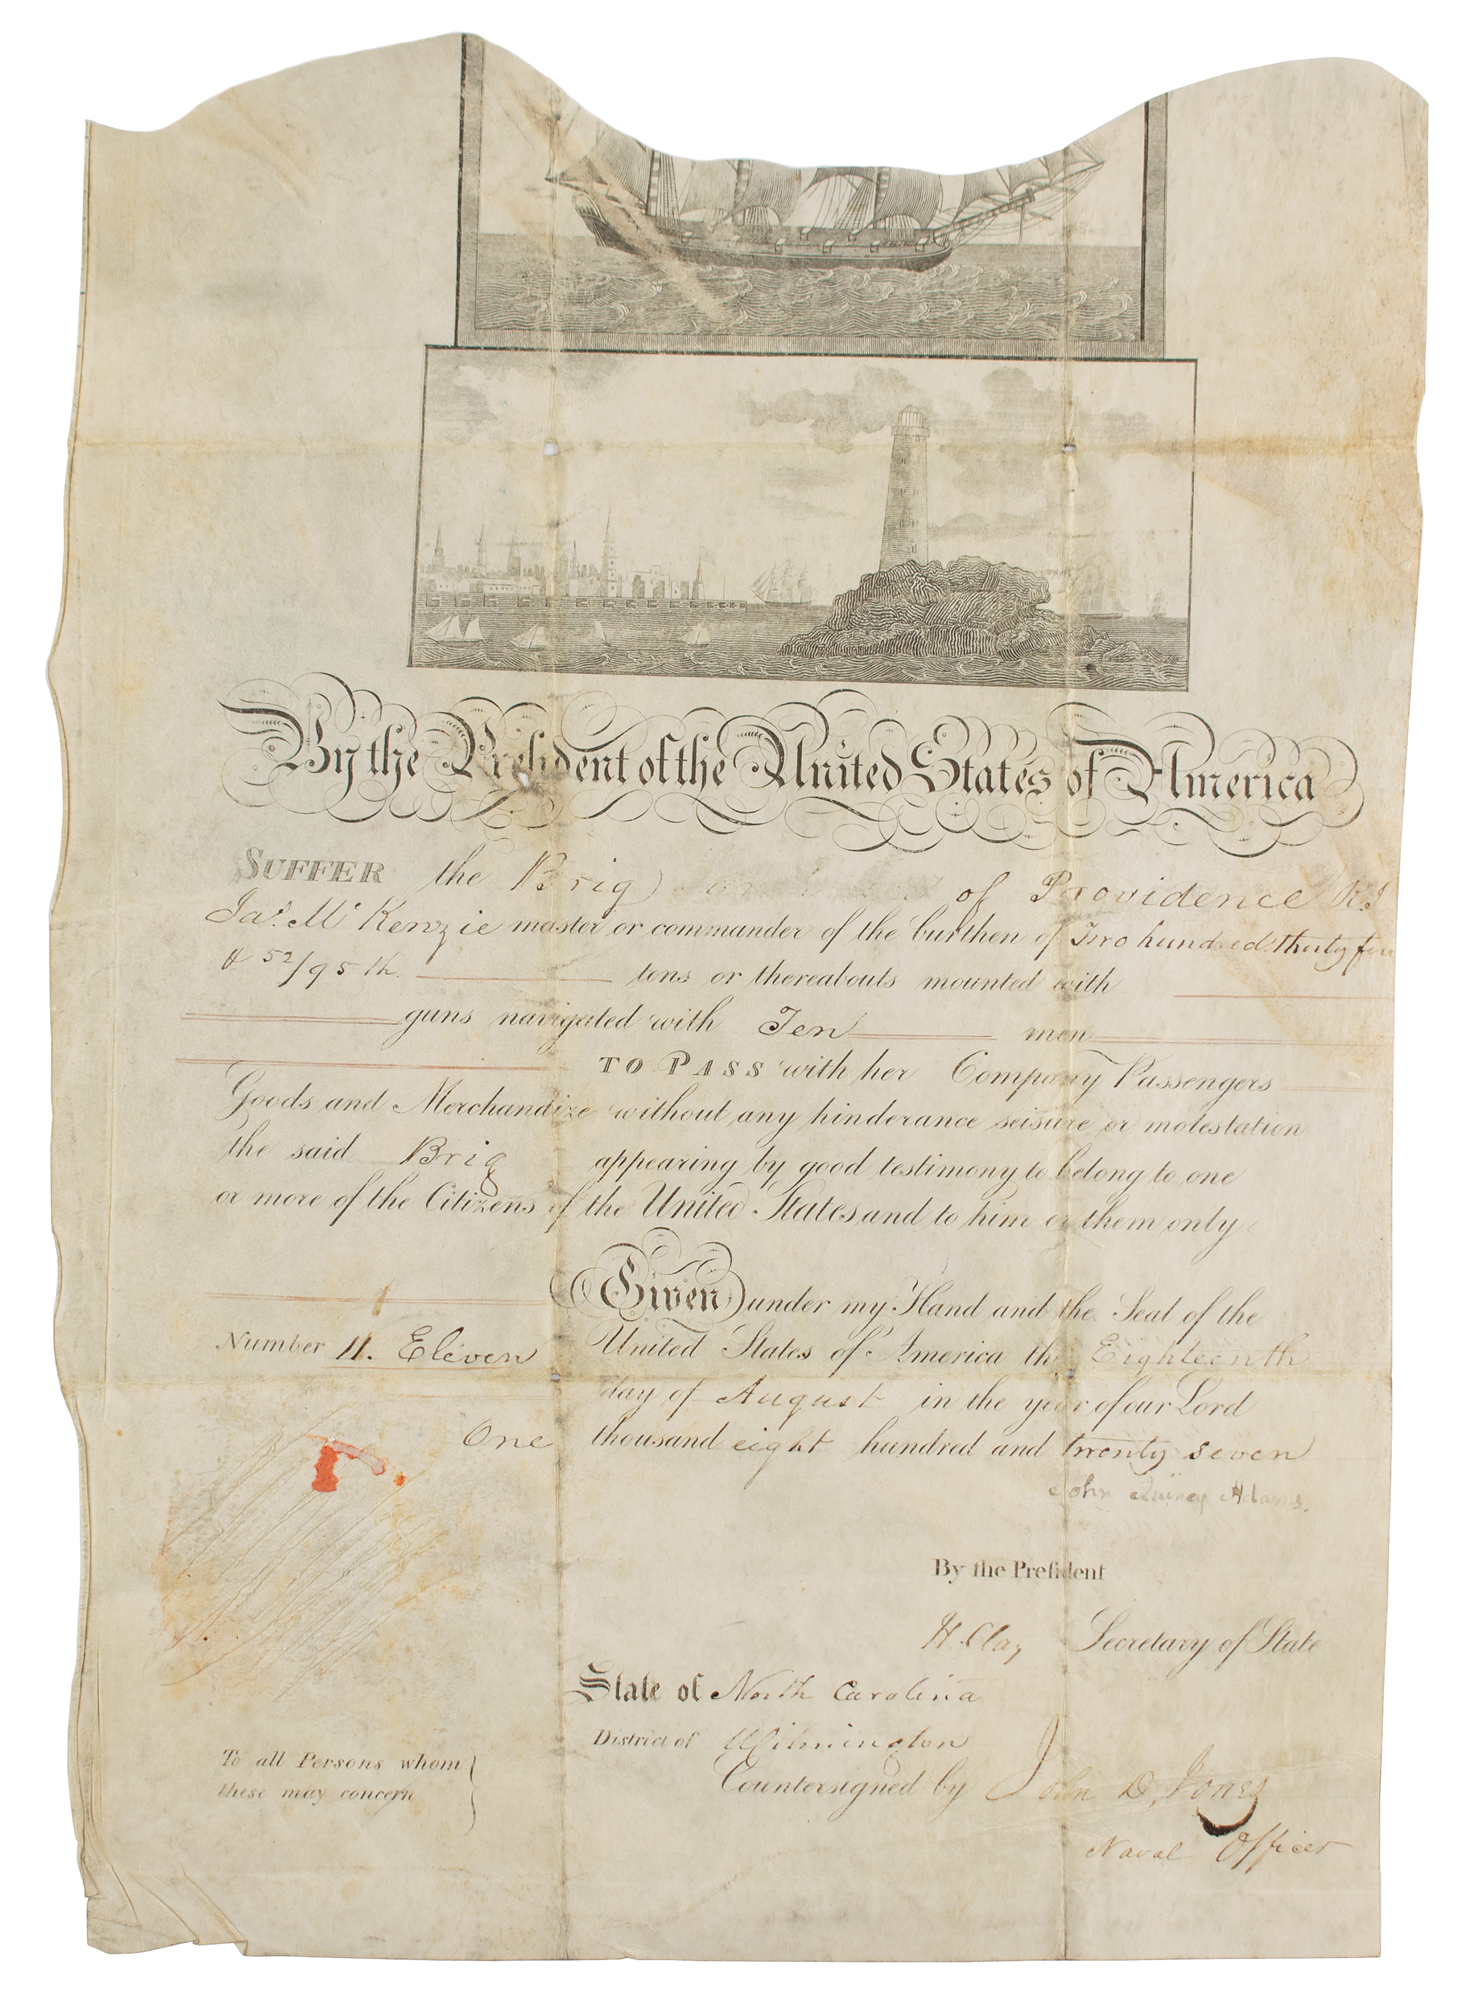 By the President of the United States of America
SUFFER the Brig of Providence R.I
Jas. Mc Kenzie master or commander of the burthen of Two hundred thirty five
& 52/95th. tons or thereabouts mounted with
guns navigated with Ten men
TO PASS with her Company Passengers
Goods and Merchandize without any hinderance seisure or molestation
the said Brig appearing by good testimony to belong to one
or more of the Citizens of the United States and to him or them only
Given under my Hand and the Seal of the
Number 11. Eleven United States of America the Eighteenth
day of August in the year of our Lord
One thousand eight hundred and twenty seven
John Quincy Adams.
By the President
H. Clay Secretary of State
State of North Carolina
District of Wilmington
To all Persons whom
these may concern
Countersigned by John D. Jones
Naval Officer